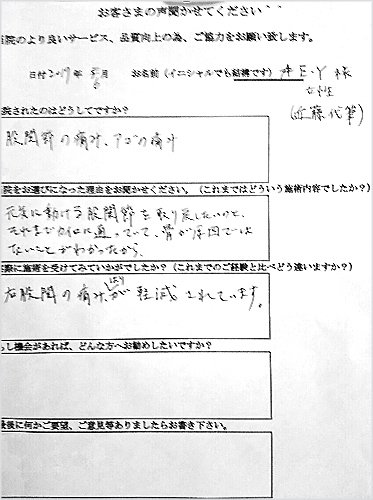 お客さまの声聞かせてください
当院のより良いサービス、品質向上の為、ご協力をお願い致します。
日付2019年 5月 お名前(イニシャルでも結構です) E.Y 様
6 女性
(近藤代筆)
院されたのはどうしてですか?
股関節の痛み、アゴの痛み
院をお選びになった理由をお聞かせください。(これまではどういう施術内容でしたか?)
元気に動ける股関節を取り戻したいのと、
それまで に通っていて、骨が原因では
ないことがわかったから、
際に施術を受けてみていかがでしたか?(これまでのご経験と比べどう違いますか?)
右股関の痛み、はりが軽減されています。
もし機会があれば、どんな方へお勧めしたいですか?
最後に何かご要望、ご意見等ありましたらお書き下さい。